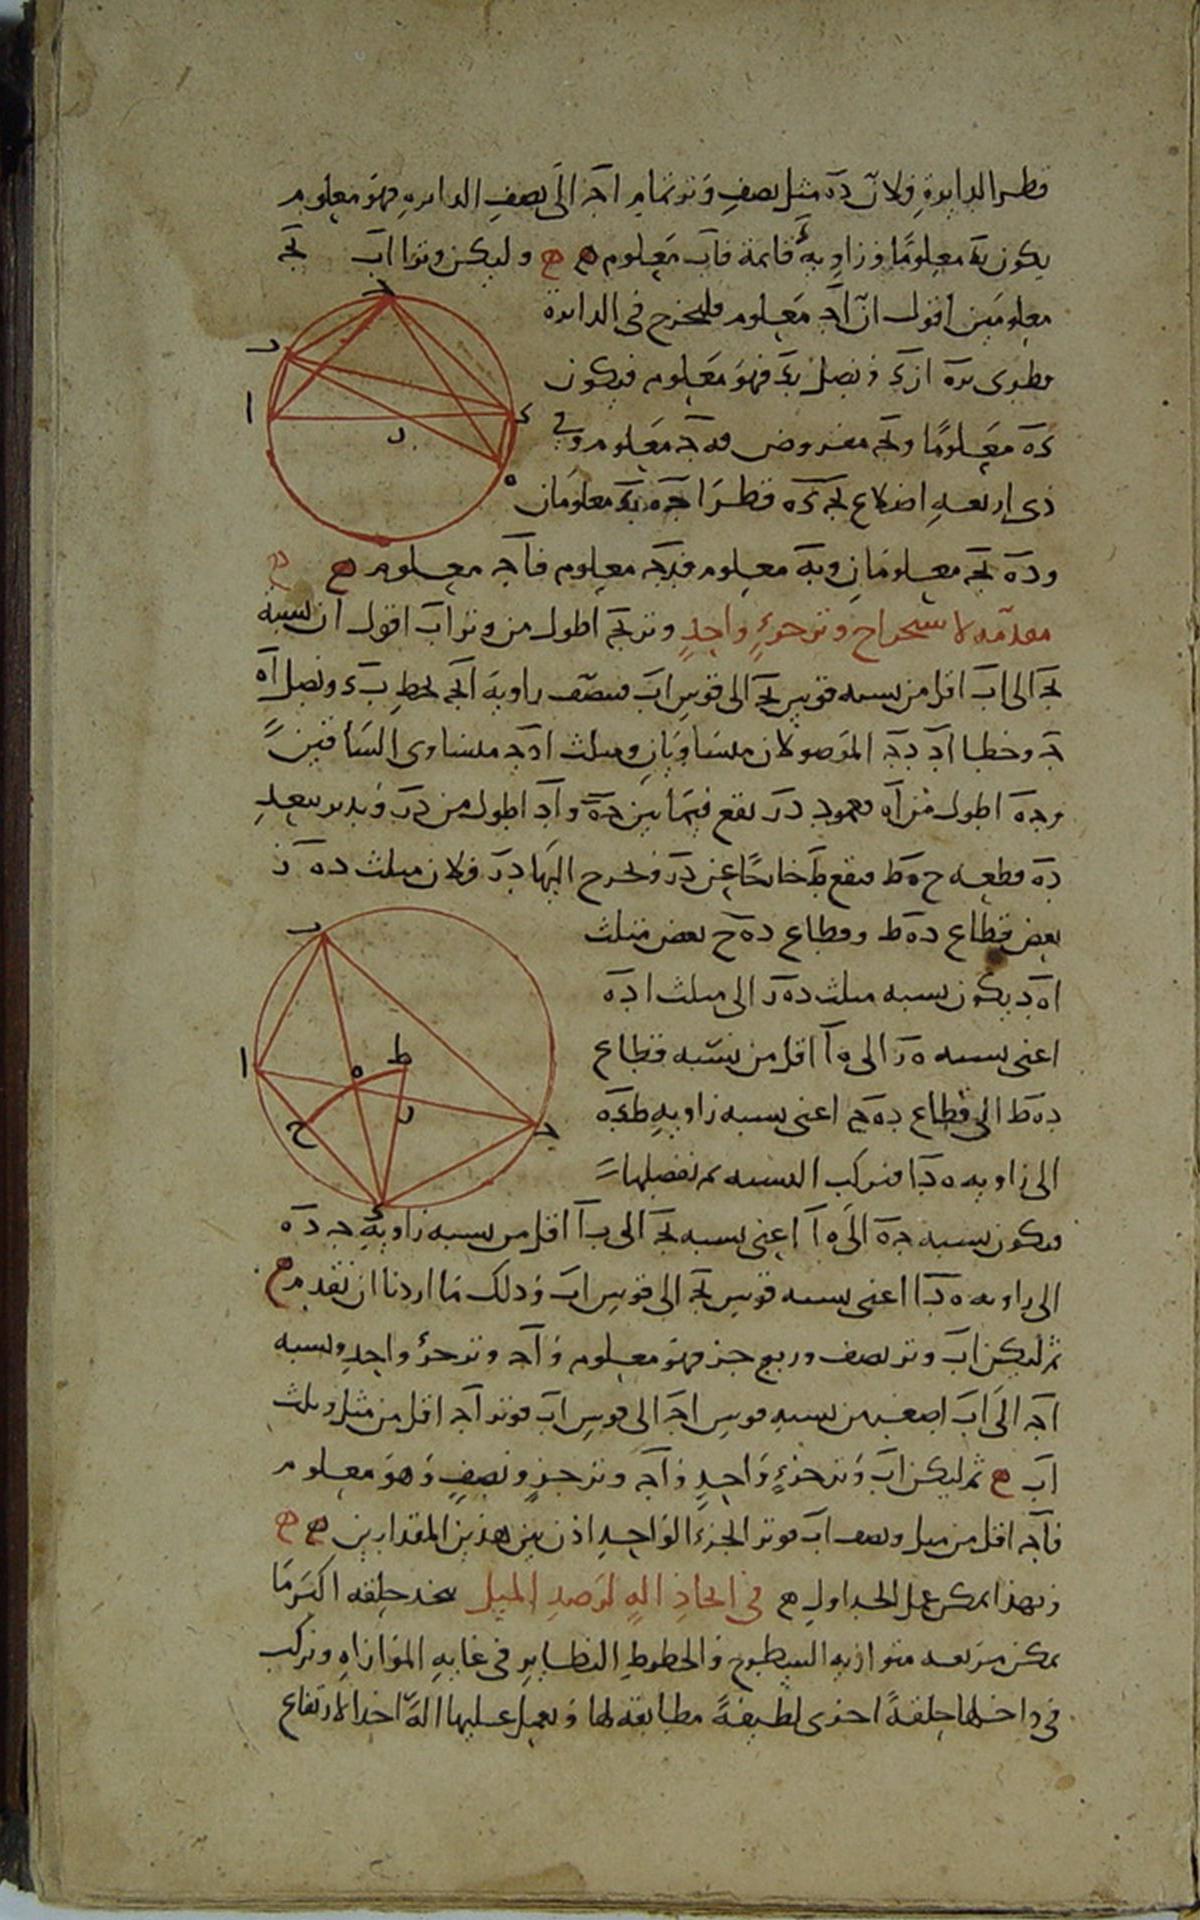 قطر الدايرة فلان دہ مثل نصف وتر تمام اجـ الى نصف الدايره فهو معلوم
يكون به معلومًا وزاوية قائمة فاب معلوم ه ه وليكن وترا اب بجـ
معلومين اقول ان اجـ معلوم فليخرج فى الدايرة
قطرى بره ازء ونصل بء فهو معلوم فيكون
ءه معلومًا وبجـ مفروض فه جـ معلوم وفى
ذى اربعة اضلاع بجـ ءه قطرا جه بء معلومان
وءه بجـ معلومان وبه معلوم فدجـ معلوم فاجـ معلوم ه ه
مقدمه لاستخراج وتر جزءٍ واحدٍ وتر بجـ اطول من وتر اب اقول ان نسبة
بجـ الى اب اقل من نسبه قوس بجـ الى قوس اب فننصف زاوية ابجـ بخط بء ونصل اه
جـ وخطا اد دجـ الموصولان متساويان ومثلث ادجـ متساوى الساقين
وجه اطول من اه فعمود در يقع فيما بين جه واد اطول من در وندير ببعد
ده قطعه ح ه ط فيقع ط خارجًا عن در ونخرج اليها در ولان مثلث ده ز
بعض قطاع ده ط وقطاع ده ح بعض مثلث
اه د يكون نسبه مثلث ده ر الى مثلث اده
اعنى نسبه ه ر الى ه ا اقل من نسبه قطاع
ده ط الى قطاع ده ح اعنى نسبه زاويه ط ده
الى زاويه ه دا فنركب النسبه ثم نفصلها
فيكون نسبه جه الى ه ا اعنى نسبه بجـ الى ب ا اقل من نسبه زاويه جـ ده
الى زاويه ه دا اعنى نسبه قوس بجـ الى قوس اب وذلك ما اردنا ان نقدم ه
ثم ليكن اب وتر نصف وربع جزء فهو معلوم واجـ وتر جزءٍ واحدٍ ونسبه
اجـ الى اب اصغر من نسبه قوس اجـ الى قوس اب فوتر اجـ اقل من مثل وثلث
اب ه ثم ليكن اب وتر جزءٍ واحدٍ واجـ وتر جزءٍ ونصفٍ وهو معلوم
فاجـ اقل من مثل ونصف اب فوتر الجزء الواحد اذن بين هذين المقدارين ه ه
وبهذا يمكن عمل الجداول ه فى اتخاذ اله لرصد الميل نتخذ حلقه اكبر ما
يمكن مربعه متوازيه السطوح والخطوط النظاير فى غايه الموازاه ونركب
فى داخلها حلقةً اخرى لطيفةً مطابقه لها ونعمل عليها الة اخذ الارتفاع
ا
ب
جـ
ء
ه
ر
ا
ب
جـ
ء
ه
ط
ر
ح